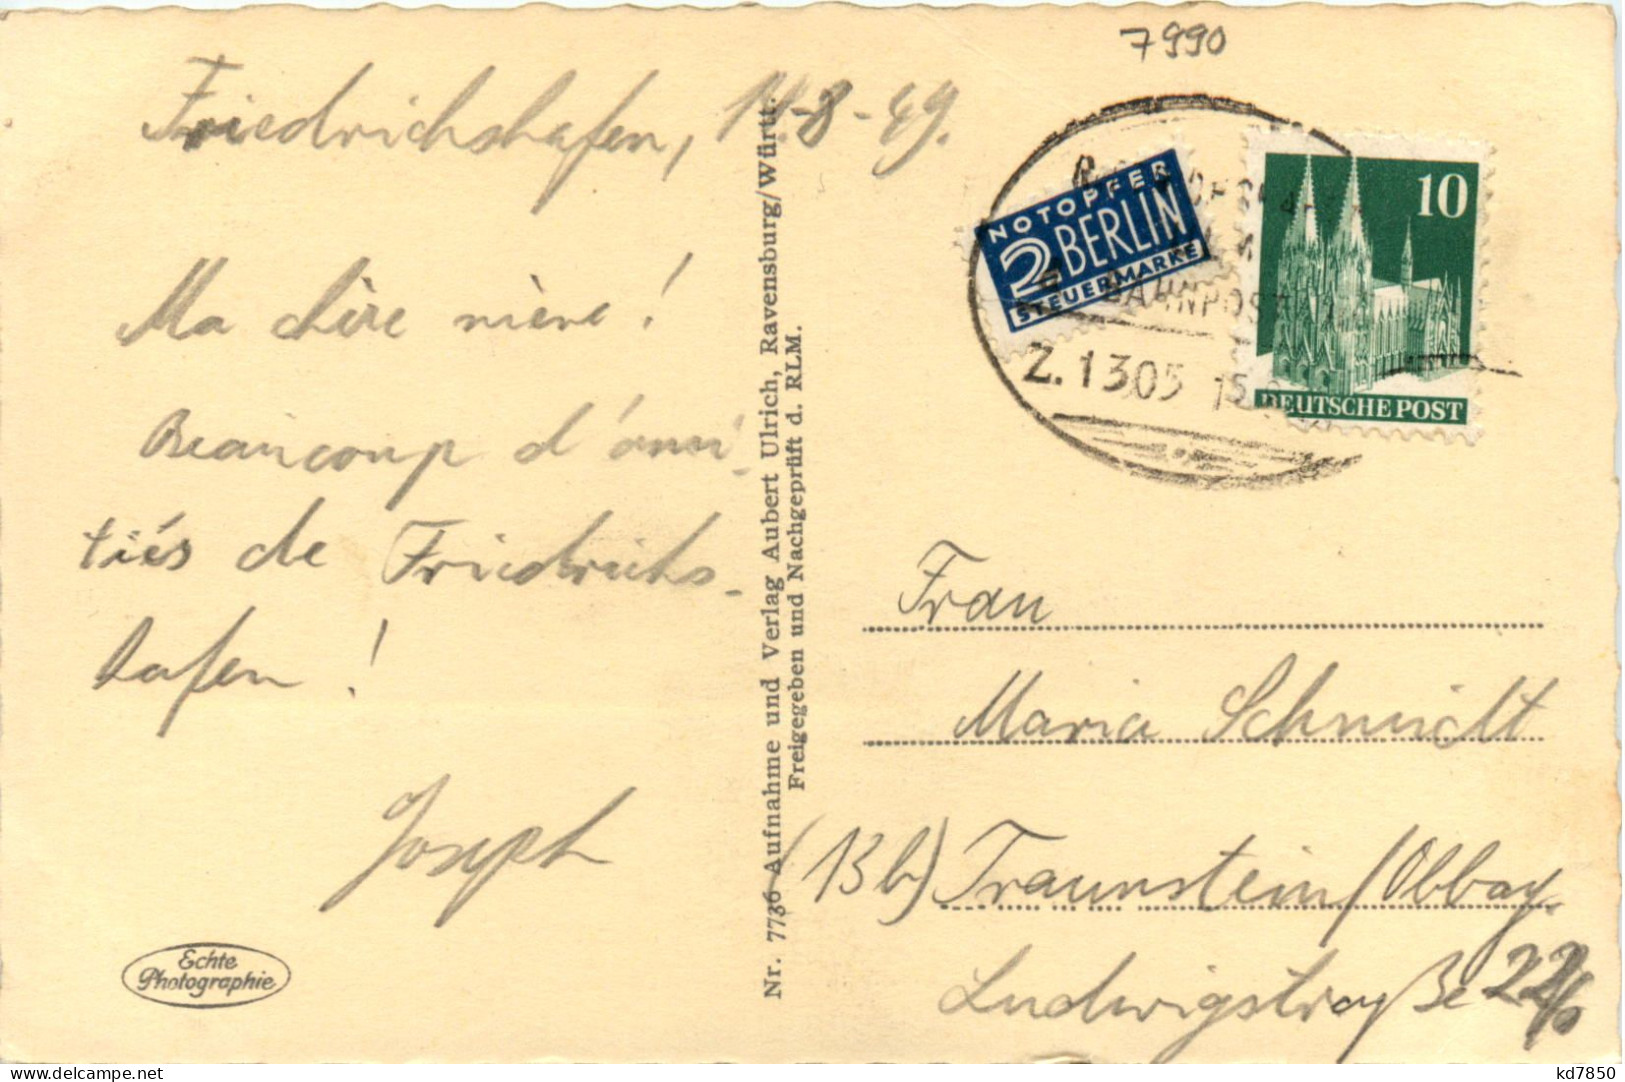 7990
Friedrichshafen, 14-8-49.
Ma chère mière!
Beaucoup d'ami-
tiés de Friedrichs-
hafen!
Joseph
Echte
Photographie
Nr. 7736 Aufnahme und Verlag Aubert Ulrich, Ravensburg/Württ.
Freigegeben und Nachgeprüft d. RLM.
NOTOPFER
2 BERLIN
STEUERMARKE
BAHNPOST
Z. 1305 15
10
DEUTSCHE POST
Frau
Maria Schmidt
(13b) Traunstein/Obbay.
Ludwigstraße
kd7850